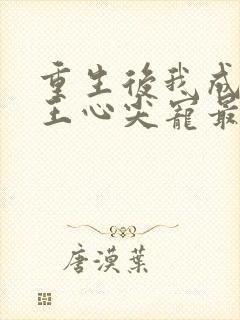 重生後我成
王心尖寵最
唐漠葉